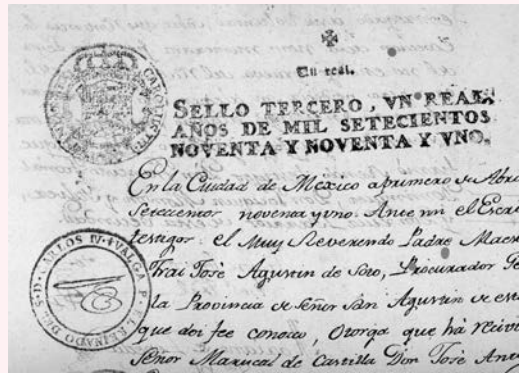 Un real.
SELLO TERCERO, VN REAL,
AÑOS DE MIL SETECIENTOS
NOVENTA Y NOVENTA Y VNO.
En la Ciudad de Mexico a primero de Abril
setecientos noventa y uno. Ante mi el
testigos el Muy Reverendo Padre
Frai José Agustin de Soto, Procurador
la Provincia de Señor San Agustin de
que doi fee conozco, Otorga que há
Señor Mariscal de Castilla Don José
VALGA P. EL REINADO DEL S. D. CARLOS IV